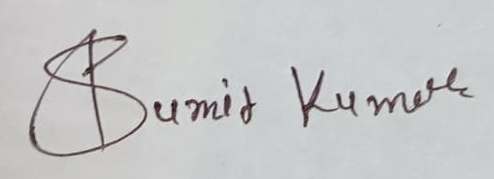 Sumit Kumar